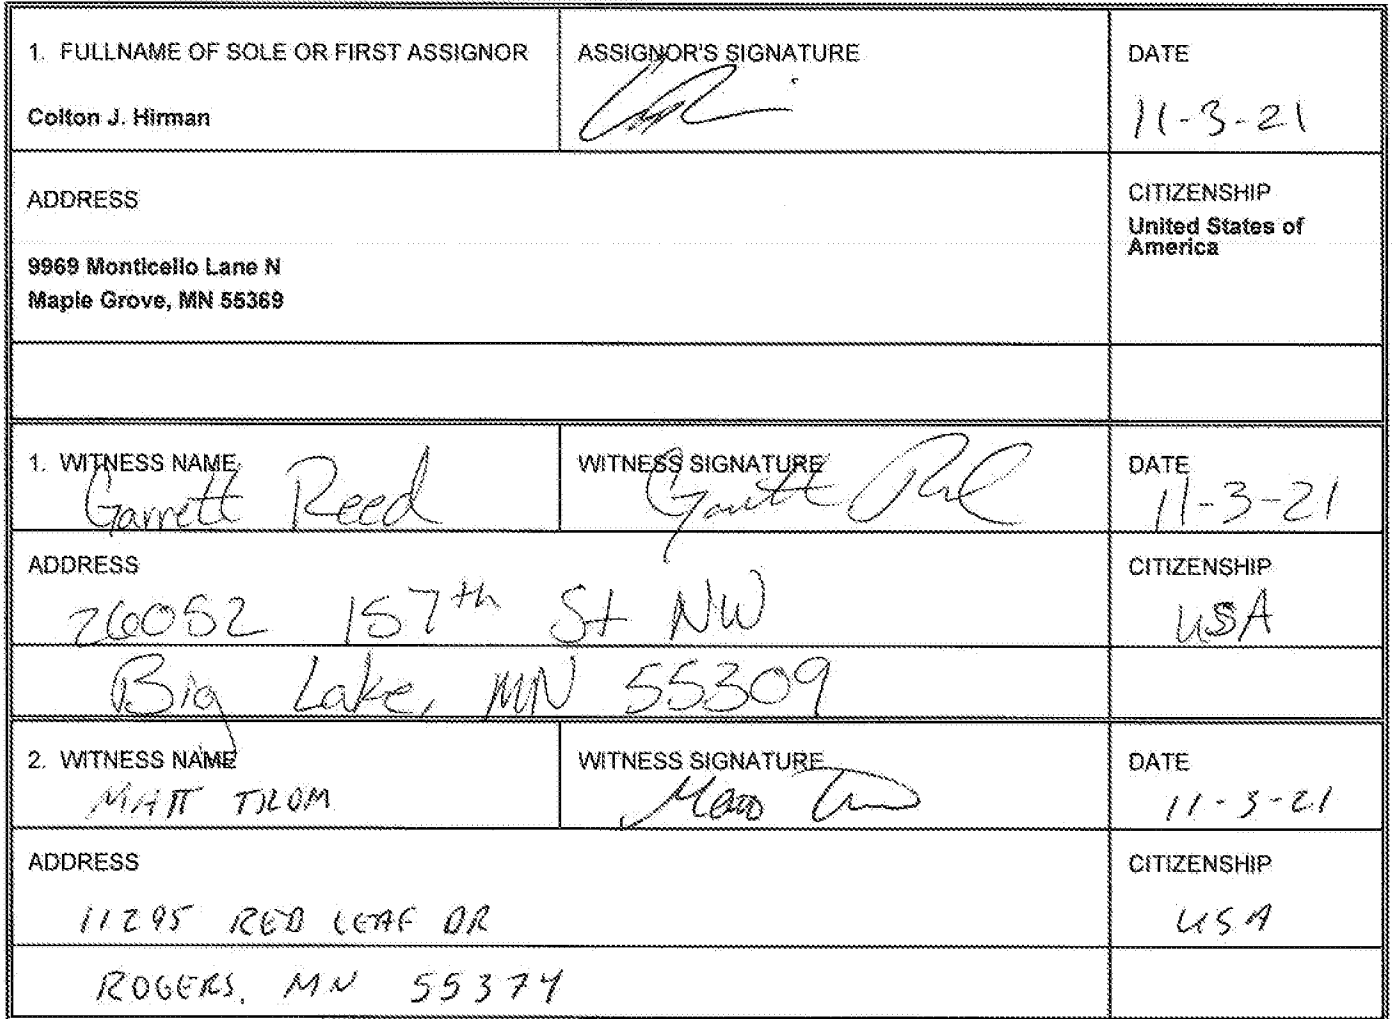 1. FULLNAME OF SOLE OR FIRST ASSIGNOR
Colton J. Hirman
ASSIGNOR'S SIGNATURE
DATE
11-3-21
ADDRESS
9969 Monticello Lane N
Maple Grove, MN 55369
CITIZENSHIP
United States of
America
1. WITNESS NAME
Garrett Reed
WITNESS SIGNATURE
DATE
11-3-21
ADDRESS
26052 157th St NW
Big Lake, MN 55309
CITIZENSHIP
USA
2. WITNESS NAME
MATT THOM
WITNESS SIGNATURE
DATE
11-3-21
ADDRESS
11295 RED LEAF DR
ROGERS, MN 55374
CITIZENSHIP
USA